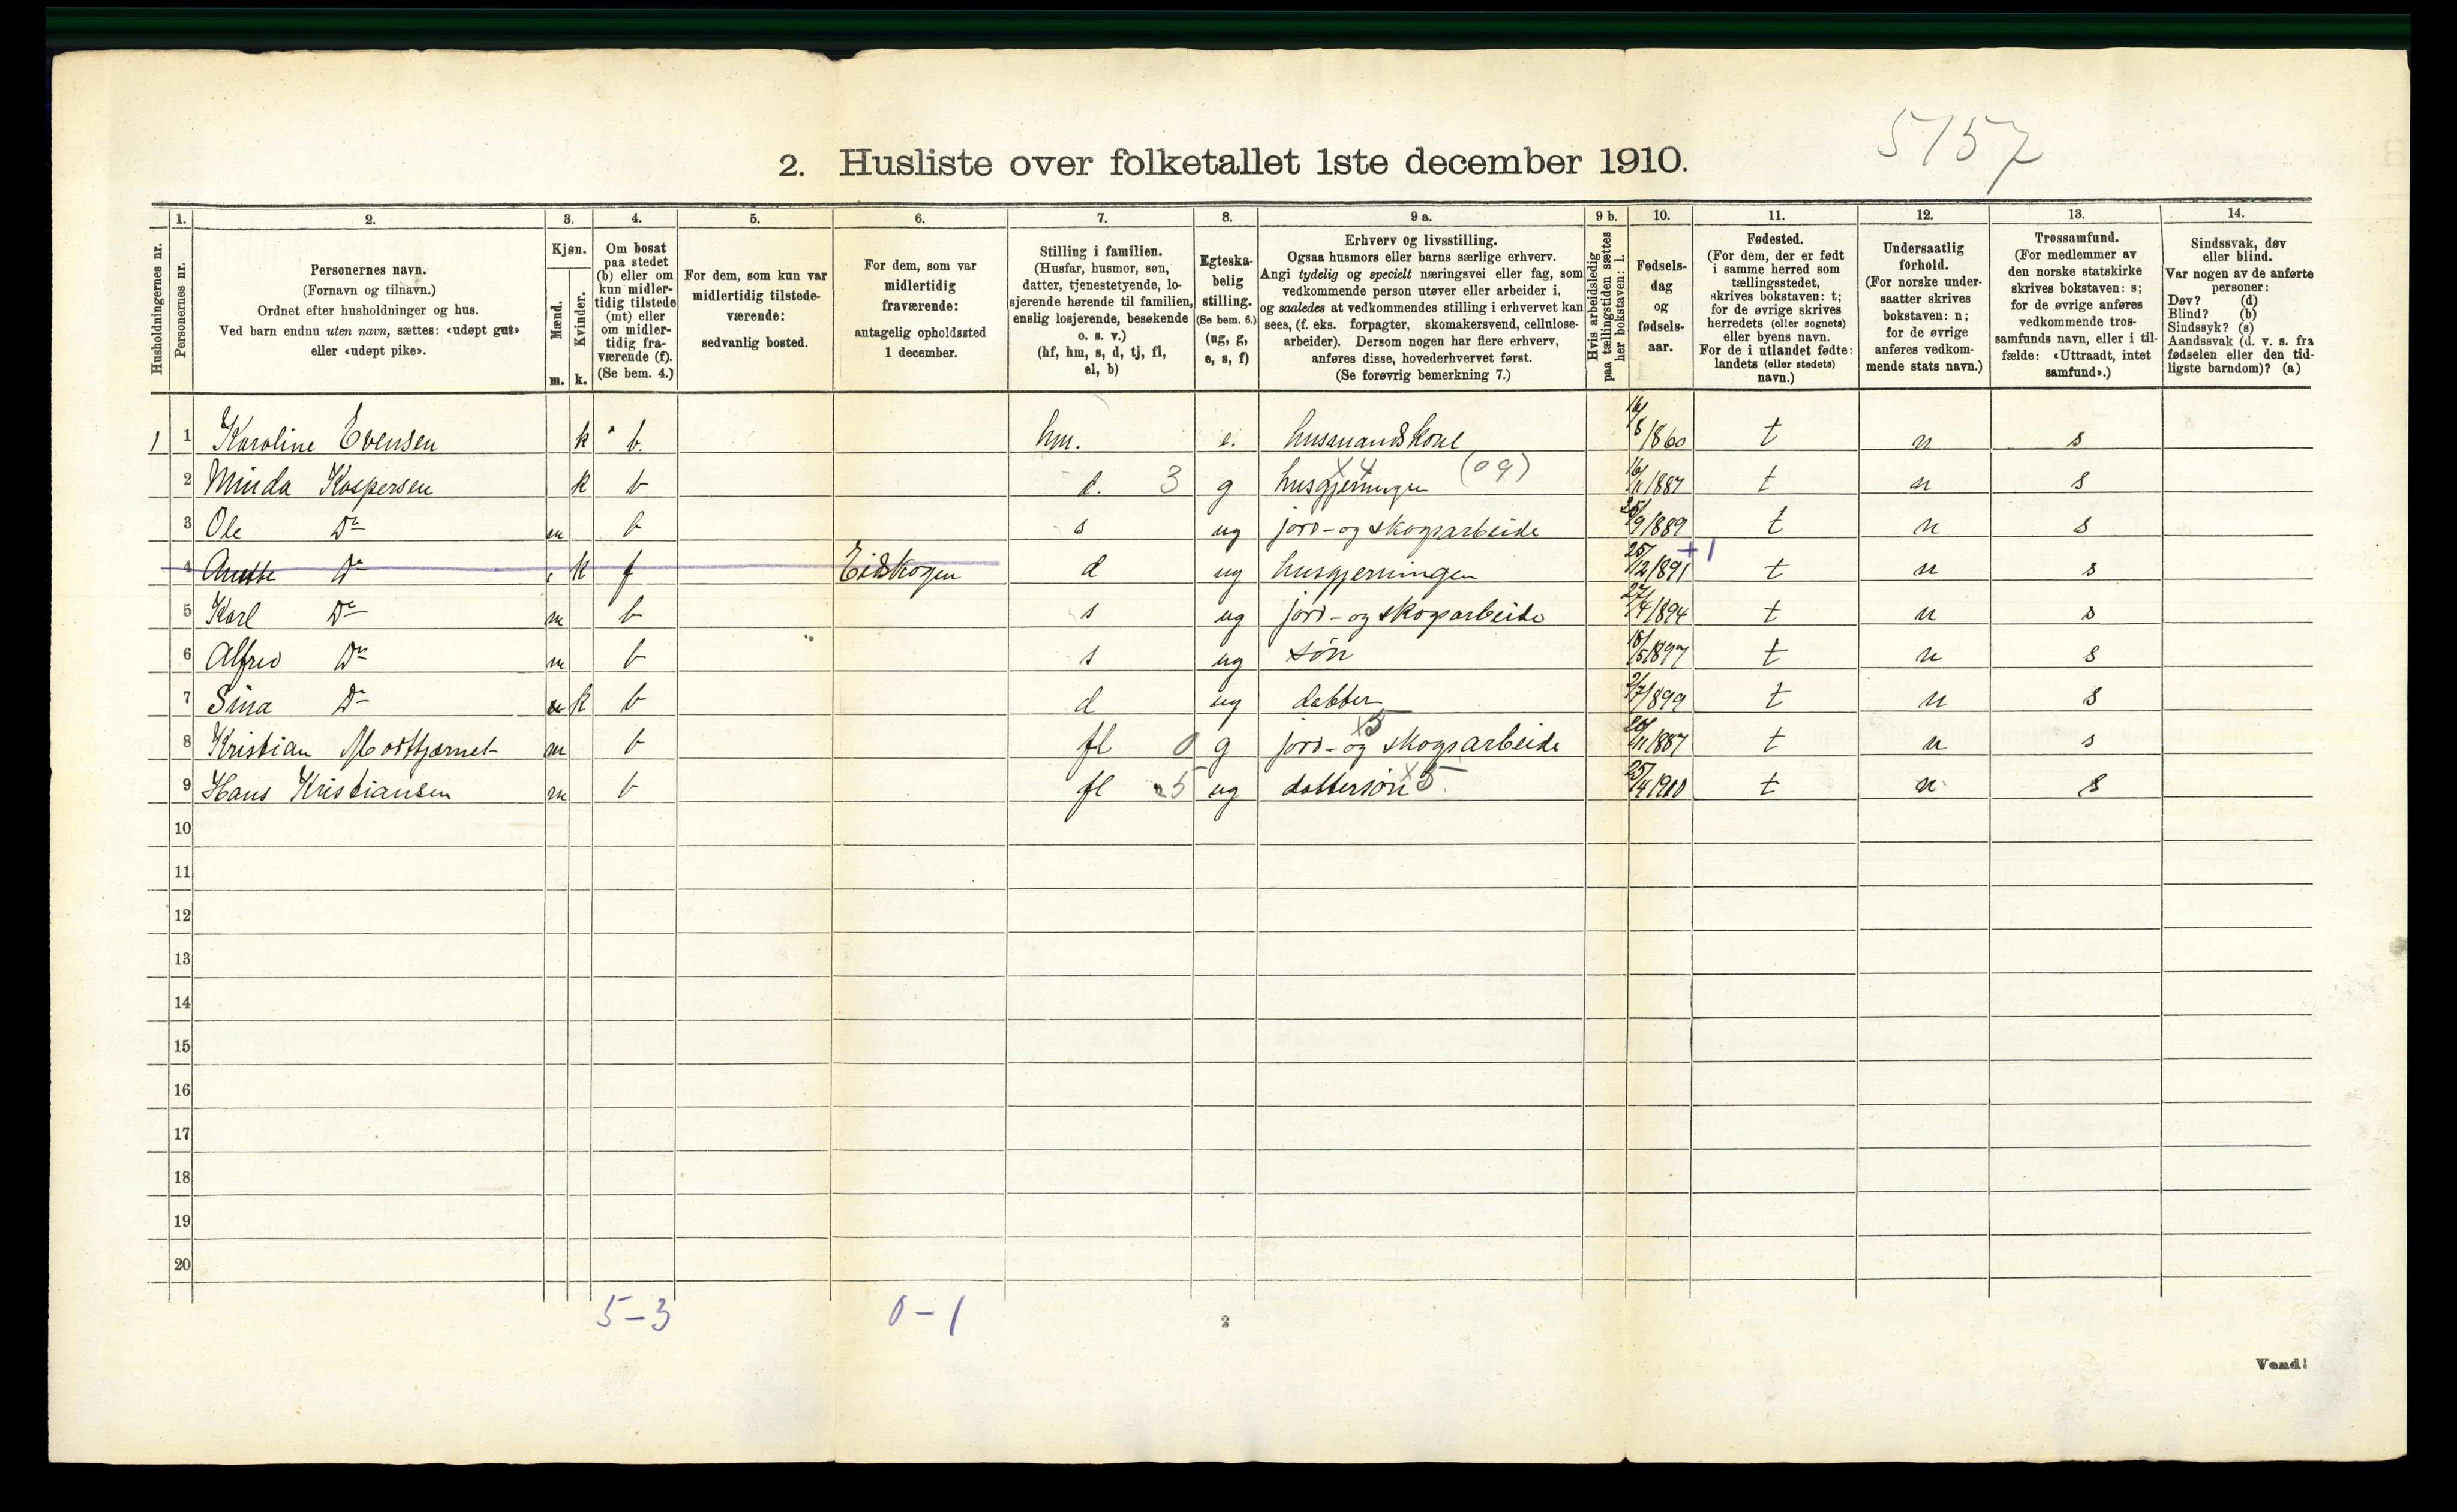 5157
2. Husliste over folketallet 1ste december 1910.
Husholdningernes nr.
1.
Personernes nr.
2.
Personernes navn.
(Fornavn og tilnavn.)
Ordnet efter husholdninger og hus.
Ved barn endnu uten navn, sættes: «udøpt gut»
eller «udøpt pike».
3.
Kjøn.
Mænd.
m.
Kvinder.
k.
4.
Om bosat
paa stedet
(b) eller om
kun midler-
tidig tilstede
(mt) eller
om midler-
tidig fra-
værende (f).
(Se bem. 4.)
5.
For dem, som kun var
midlertidig tilstede-
værende:
sedvanlig bosted.
6.
For dem, som var
midlertidig
fraværende:
antagelig opholdssted
1 december.
7.
Stilling i familien.
(Husfar, husmor, søn,
datter, tjenestetyende, lo-
sjerende hørende til familien,
enslig losjerende, besøkende
o. s. v.)
(hf, hm, s, d, tj, fl,
el, b)
8.
Egteska-
belig
stilling.
(Se bem. 6.)
(ug, g,
e, s, f)
9 a.
Erhverv og livsstilling.
Ogsaa husmors eller barns særlige erhverv.
Angi tydelig og specielt næringsvei eller fag, som
vedkommende person utøver eller arbeider i,
og saaledes at vedkommendes stilling i erhvervet kan
sees, (f. eks. forpagter, skomakersvend, cellulose-
arbeider). Dersom nogen har flere erhverv,
anføres disse, hovederhvervet først.
(Se forøvrig bemerkning 7.)
9 b.
Hvis arbeidsledig
paa tællingstiden sættes
her bokstaven: l.
10.
Fødsels-
dag
og
fødsels-
aar.
11.
Fødested.
(For dem, der er født
i samme herred som
tællingsstedet,
skrives bokstaven: t;
for de øvrige skrives
herredets (eller sognets)
eller byens navn.
For de i utlandet fødte:
landets (eller stedets)
navn.)
12.
Undersaatlig
forhold.
(For norske under-
saatter skrives
bokstaven: n;
for de øvrige
anføres vedkom-
mende stats navn.)
13.
Trossamfund.
(For medlemmer av
den norske statskirke
skrives bokstaven: s;
for de øvrige anføres
vedkommende tros-
samfunds navn, eller i til-
fælde: «Uttraadt, intet
samfund».)
14.
Sindssvak, døv
eller blind.
Var nogen av de anførte
personer:
Døv? (d)
Blind? (b)
Sindssyk? (s)
Aandssvak (d. v. s. fra
fødselen eller den tid-
ligste barndom)? (a)
1 1 Karoline Evensen k b. hm. e. husmandskone 16/8 1860 t n s
2 Minda Kaspersen k b d. 3 g husgjerningen x4 (09) 16/11 1887 t n s
3 Ole Do m b s ug jord- og skogsarbeide 25/9 1889 t n s
4 Anette Do k f Eidskogen d ug husgjerningen 25/12 1891 +1 t n s
5 Karl Do m b s ug jord- og skogsarbeide 27/4 1894 t n s
6 Alfred Do m b s ug søn 18/5 1897 t n s
7 Sina Do k b d ug datter 2/7 1899 t n s
8 Kristian Mosttjærnet m b fl 0 g jord- og skogsarbeide x5 20/11 1887 t n s
9 Hans Kristiansen m b fl 5 ug dattersøn x5 25/4 1910 t n s
10
11
12
13
14
15
16
17
18
19
20
5-3 0-1
2
Vend!